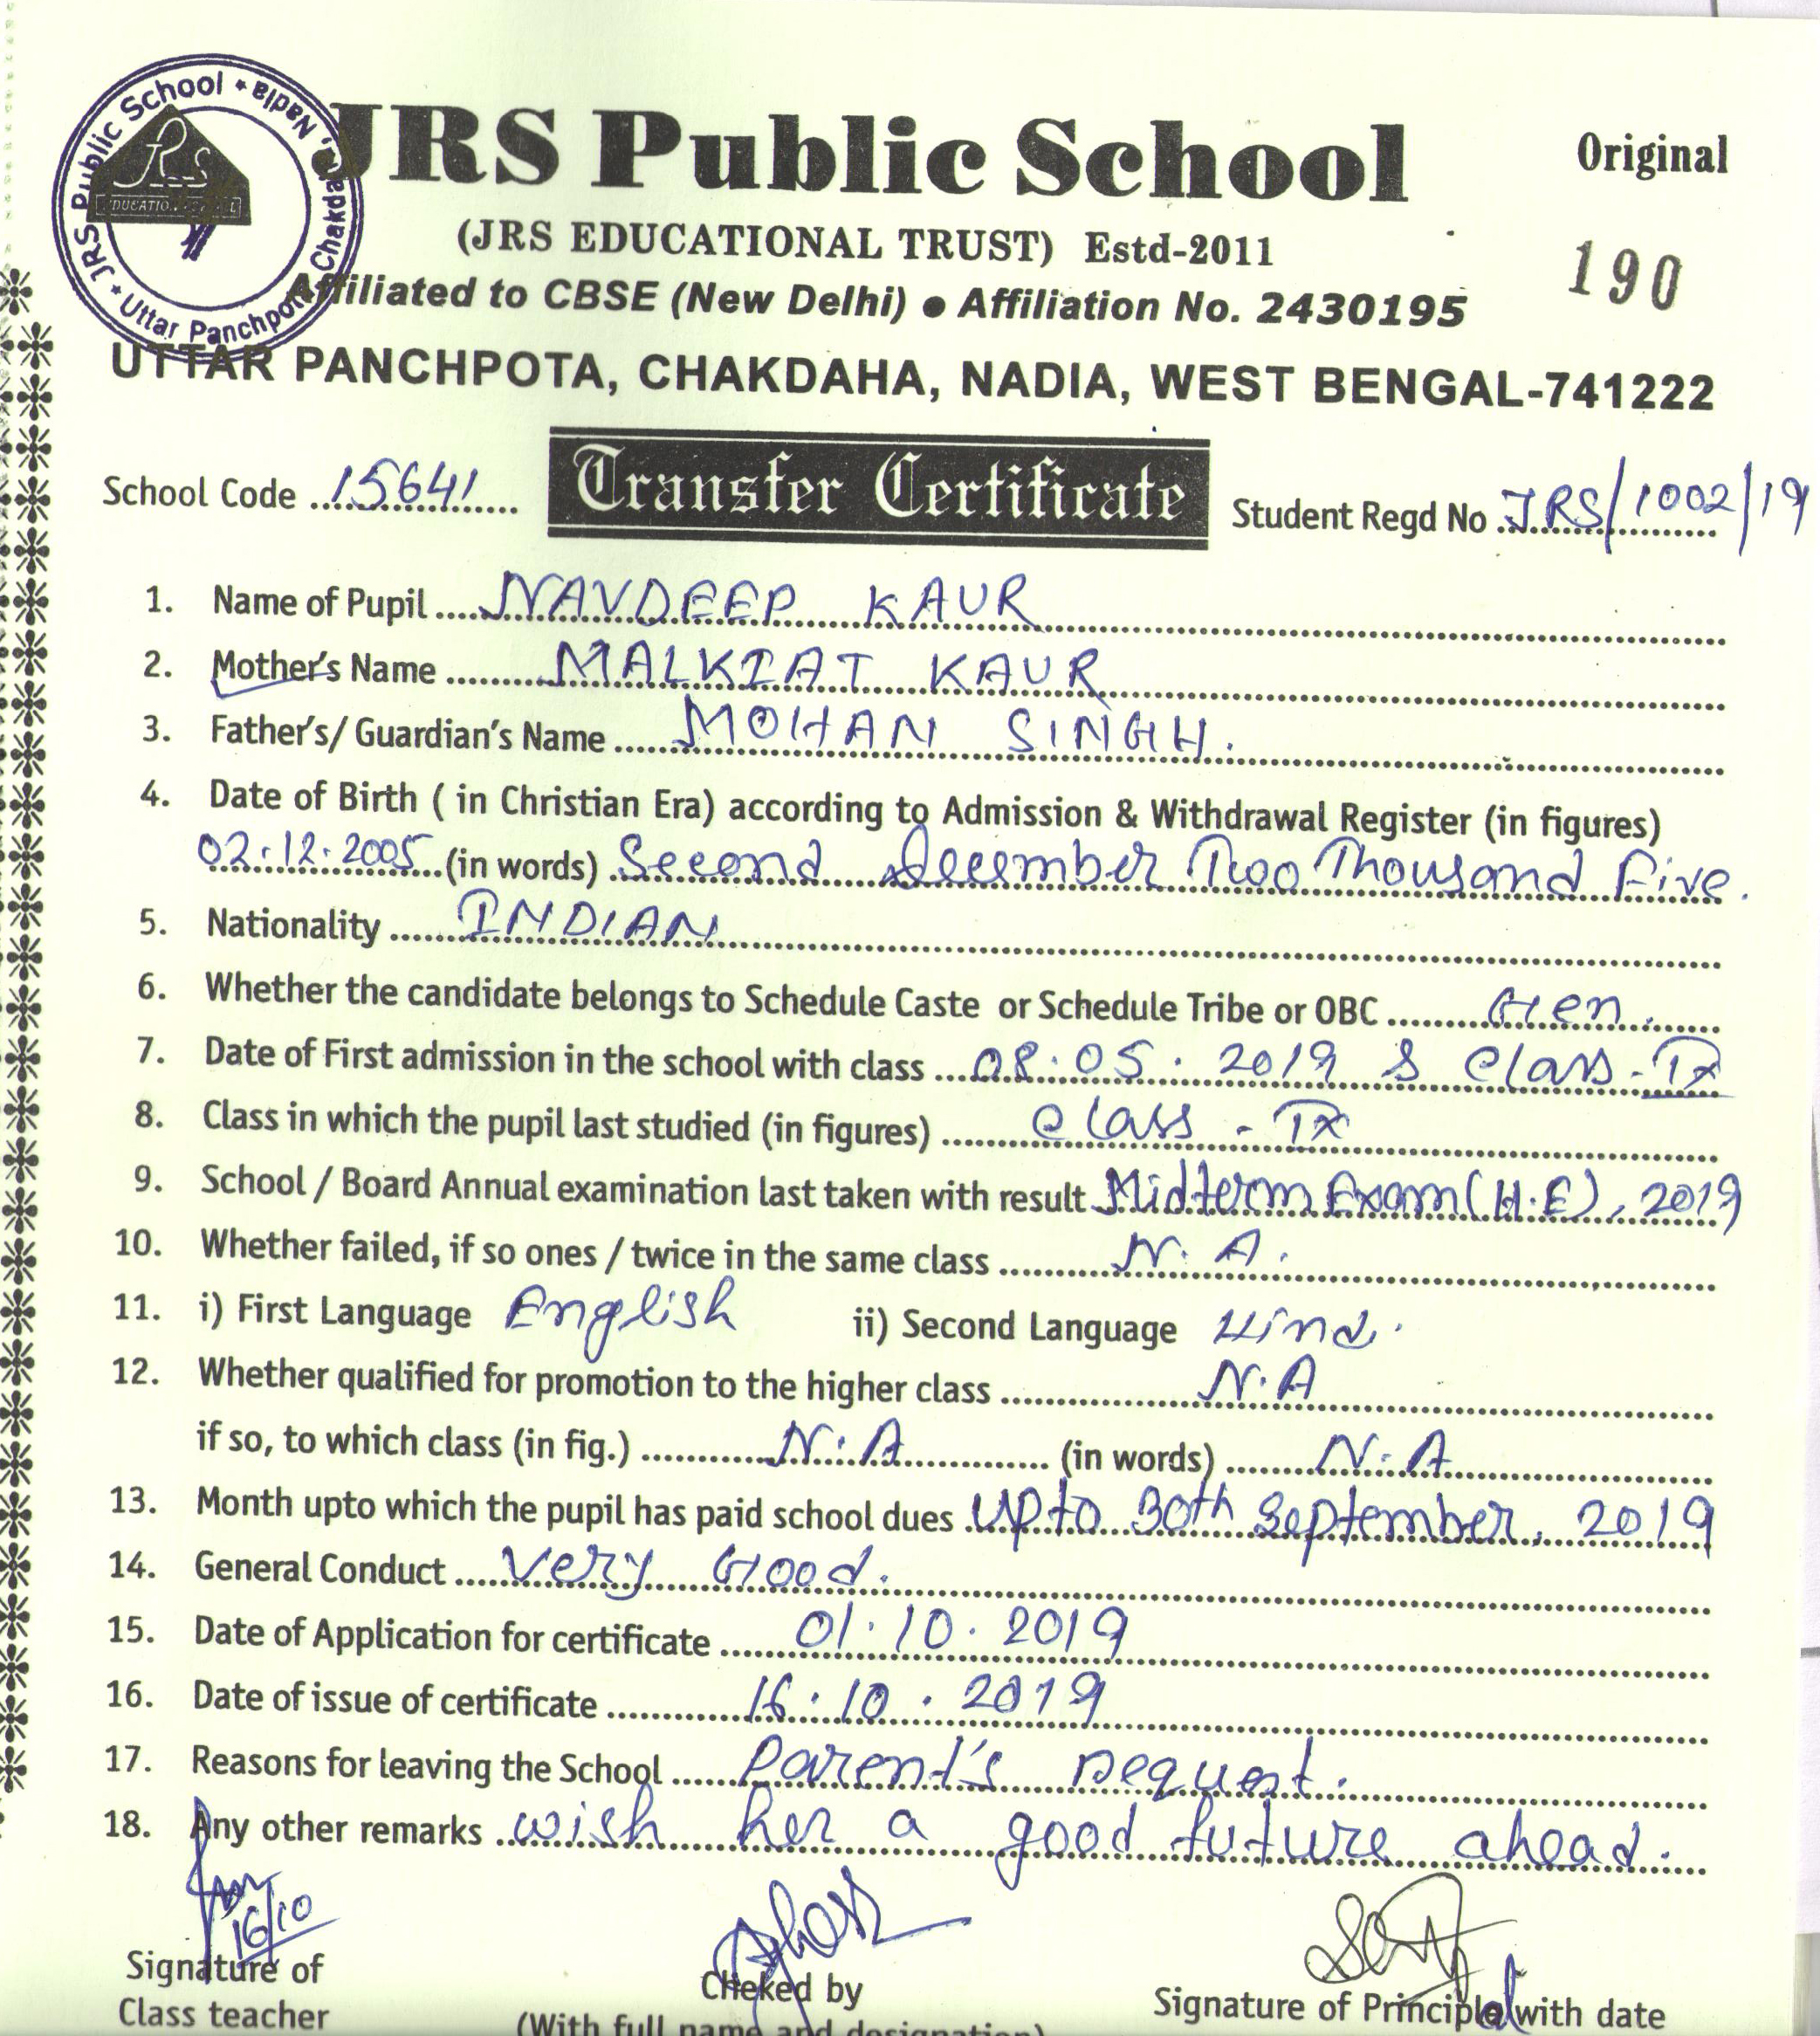 JRS Public School * Uttar Panchpota, Chakdaha, Nadia *
JRS
JRS Public School
Original
(JRS EDUCATIONAL TRUST) Estd-2011
190
Affiliated to CBSE (New Delhi) ● Affiliation No. 2430195
UTTAR PANCHPOTA, CHAKDAHA, NADIA, WEST BENGAL-741222
School Code 15641 Transfer Certificate Student Regd No JRS/1002/19
1. Name of Pupil NAVDEEP KAUR
2. Mother's Name MALKIAT KAUR
3. Father's/ Guardian's Name MOHAN SINGH.
4. Date of Birth ( in Christian Era) according to Admission & Withdrawal Register (in figures)
02.12.2005 (in words) Second December Two Thousand Five.
5. Nationality INDIAN
6. Whether the candidate belongs to Schedule Caste or Schedule Tribe or OBC Gen.
7. Date of First admission in the school with class 08.05.2019 & Class-IX
8. Class in which the pupil last studied (in figures) Class - IX
9. School / Board Annual examination last taken with result Midterm Exam (H.E), 2019
10. Whether failed, if so ones / twice in the same class N.A.
11. i) First Language English ii) Second Language Hindi
12. Whether qualified for promotion to the higher class N.A
if so, to which class (in fig.) N.A (in words) N.A
13. Month upto which the pupil has paid school dues Upto 30th September, 2019
14. General Conduct Very Good.
15. Date of Application for certificate 01.10.2019
16. Date of issue of certificate 16.10.2019
17. Reasons for leaving the School Parent's request.
18. Any other remarks wish her a good future ahead.
16/10
Signature of Cheked by Signature of Principal with date
Class teacher (With full name and designation)